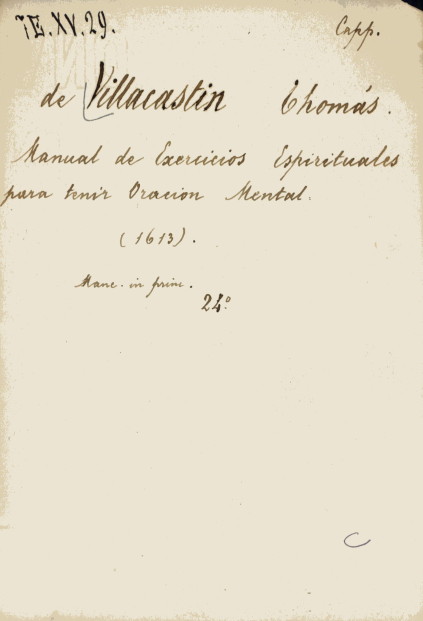 7E.XV.29. Capp.
de Villacastin Thomás.
Manual de Exercicios Espirituales
para tenir Oracion Mental.
(1613).
Manc. in princ.
24º
C